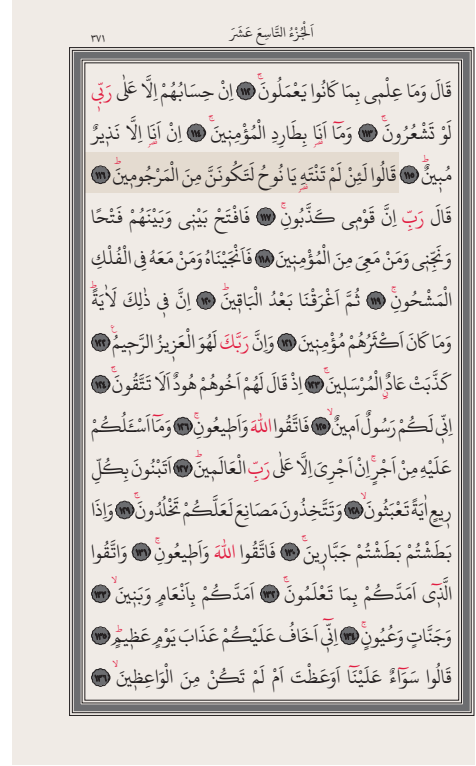 اَلْجُزْءُ التَّاسِعَ عَشَرَ
٣٧١
قَالَ وَمَا عِلْمٖى بِمَا كَانُوا يَعْمَلُونَۚ ﴿١١٢﴾ اِنْ حِسَابُهُمْ اِلَّا عَلٰى رَبّٖى
لَوْ تَشْعُرُونَۚ ﴿١١٣﴾ وَمَٓا اَنَا۬ بِطَارِدِ الْمُؤْمِنٖينَۚ ﴿١١٤﴾ اِنْ اَنَا۬ اِلَّا نَذٖيرٌ
مُبٖينٌۜ ﴿١١٥﴾ قَالُوا لَئِنْ لَمْ تَنْتَهِ يَا نُوحُ لَتَكُونَنَّ مِنَ الْمَرْجُومٖينَۜ ﴿١١٦﴾
قَالَ رَبِّ اِنَّ قَوْمٖى كَذَّبُونِۚ ﴿١١٧﴾ فَافْتَحْ بَيْنٖى وَبَيْنَهُمْ فَتْحًا
وَنَجِّنٖى وَمَنْ مَعِىَ مِنَ الْمُؤْمِنٖينَ ﴿١١٨﴾ فَاَنْجَيْنَاهُ وَمَنْ مَعَهُ فِى الْفُلْكِ
الْمَشْحُونِۚ ﴿١١٩﴾ ثُمَّ اَغْرَقْنَا بَعْدُ الْبَاقٖينَۜ ﴿١٢٠﴾ اِنَّ فٖى ذٰلِكَ لَاٰيَةًۜ
وَمَا كَانَ اَكْثَرُهُمْ مُؤْمِنٖينَ ﴿١٢١﴾ وَاِنَّ رَبَّكَ لَهُوَ الْعَزٖيزُ الرَّحٖيمُ۟ ﴿١٢٢﴾
كَذَّبَتْ عَادٌۨ الْمُرْسَلٖينَۚ ﴿١٢٣﴾ اِذْ قَالَ لَهُمْ اَخُوهُمْ هُودٌ اَلَا تَتَّقُونَۚ ﴿١٢٤﴾
اِنّٖى لَكُمْ رَسُولٌ اَمٖينٌۙ ﴿١٢٥﴾ فَاتَّقُوا اللّٰهَ وَاَطٖيعُونِۚ ﴿١٢٦﴾ وَمَٓا اَسْـَٔلُكُمْ
عَلَيْهِ مِنْ اَجْرٍۚ اِنْ اَجْرِىَ اِلَّا عَلٰى رَبِّ الْعَالَمٖينَۜ ﴿١٢٧﴾ اَتَبْنُونَ بِكُلِّ
رٖيعٍ اٰيَةً تَعْبَثُونَۙ ﴿١٢٨﴾ وَتَتَّخِذُونَ مَصَانِعَ لَعَلَّكُمْ تَخْلُدُونَۚ ﴿١٢٩﴾ وَاِذَا
بَطَشْتُمْ بَطَشْتُمْ جَبَّارٖينَۚ ﴿١٣٠﴾ فَاتَّقُوا اللّٰهَ وَاَطٖيعُونِۚ ﴿١٣١﴾ وَاتَّقُوا
الَّذٖٓى اَمَدَّكُمْ بِمَا تَعْلَمُونَۚ ﴿١٣٢﴾ اَمَدَّكُمْ بِاَنْعَامٍ وَبَنٖينَۙ ﴿١٣٣﴾
وَجَنَّاتٍ وَعُيُونٍۚ ﴿١٣٤﴾ اِنّٖٓى اَخَافُ عَلَيْكُمْ عَذَابَ يَوْمٍ عَظٖيمٍۜ ﴿١٣٥﴾
قَالُوا سَوَٓاءٌ عَلَيْنَٓا اَوَعَظْتَ اَمْ لَمْ تَكُنْ مِنَ الْوَاعِظٖينَۙ ﴿١٣٦﴾